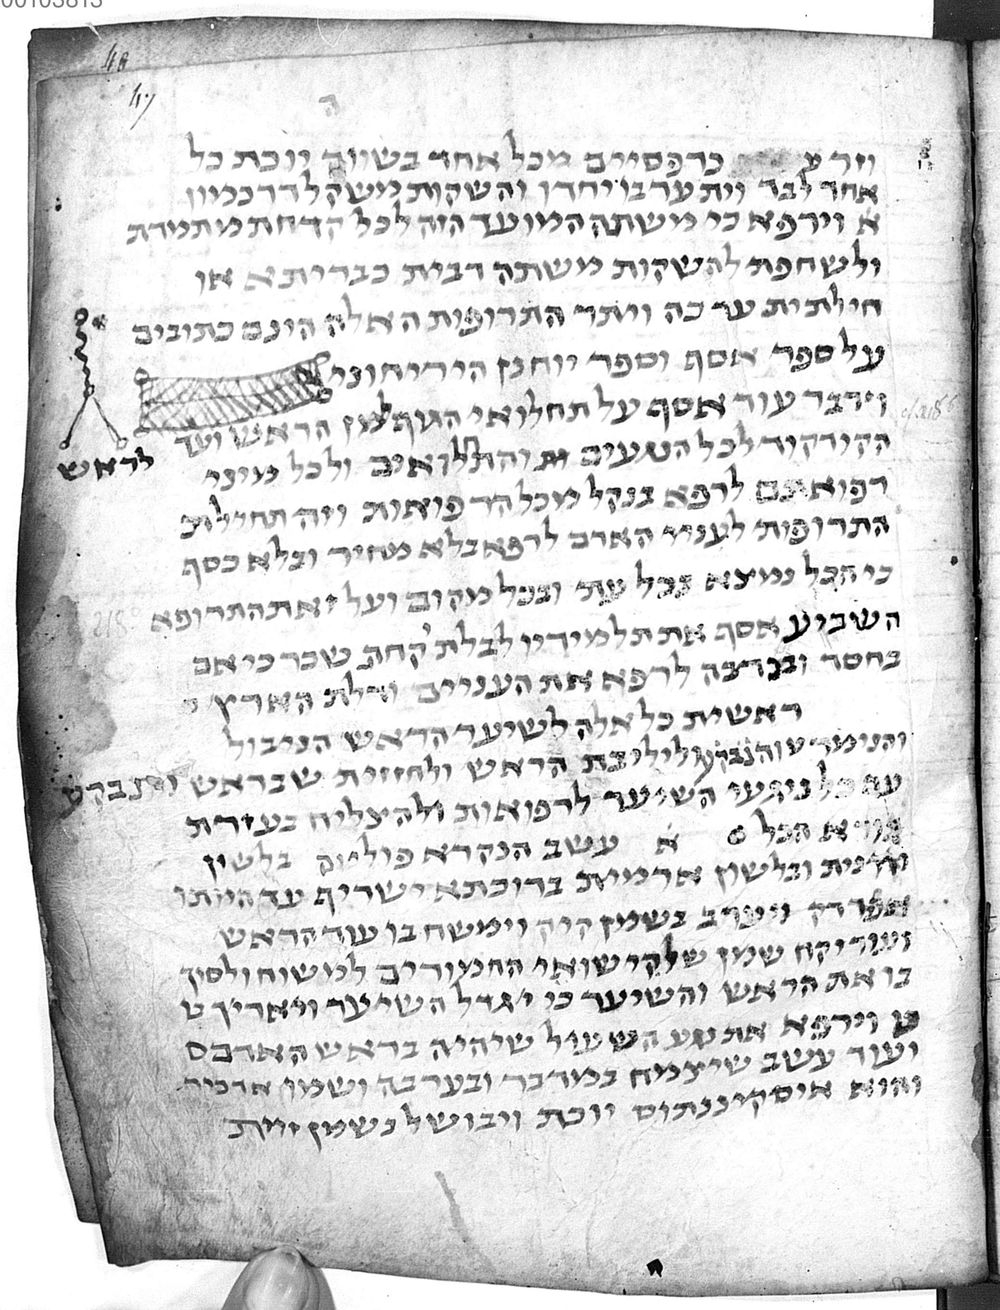 00103813
48
47
ה
וזרע כרפסיים מכל אחד בשווה יוכת כל
אחד לבד ויתערבו יחדו והשקות משקל דרכמון
א וירפא כי משתה המועד הזה לכל קדחת מתמדת
ולשחפת להשקות משתה דבית כבריתא או
חילתית ער כה ויתר התרופות האלה הינם כתובים
על ספר אסף וספר יוחנן היריחוני
וידבר עוד אסף על תחלואי הגוף מן הראש ועד
לראש
הקודקוד לכל הנגעים והתחלואים ולכל מיני
רפואתם לרפא בנקל מכל הרפואות וזה תחילת
התרופות לעניי האדם לרפא בלא מחיר ובלא כסף
כי הכל נמצא בכל עת ובכל מקום ועל זאת התרופא
השביע אסף את תלמידיו לבלת קחת שכר כי אם
בחסד ובנדבה לרפא את העניים ודלת הארץ
ראשית כל אלה לשיער הראש הניבול
והנימרט והנבקע ולילפת הראש ולחזזית שבראש והנבקע
עם כל ניגעי השיער לרפואות ולהצליח בעזרת
בורא הכל א עשב הנקרא פוליון בלשון
יוונית ובלשון ארמית ברוכתא ישריף עד היותו
אפר דק ויערב בשמן קיק וימשח בו עור הראש
ועוד יקח שמן של קישואי החמורים למשוח ולסוך
בו את הראש והשיער כי יגדל השיער ויאריך ט
וירפא את נגע השעול שיהיה בראש האדם ס
ועוד עשב שיצמח במדבר ובערבה ושמו
והוא איסקיננתוס יוכת ויבושל בשמן זית